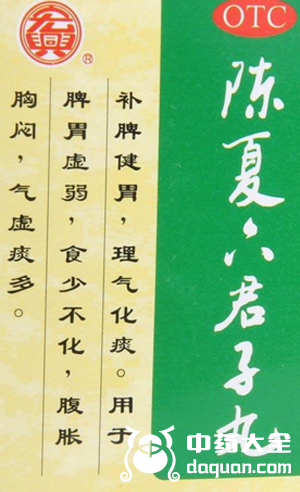 宏興
®
OTC
陈夏六君子丸
补脾健胃，理气化痰。用于
脾胃虚弱，食少不化，腹胀
胸闷，气虚痰多。
中药大全
daquan.com